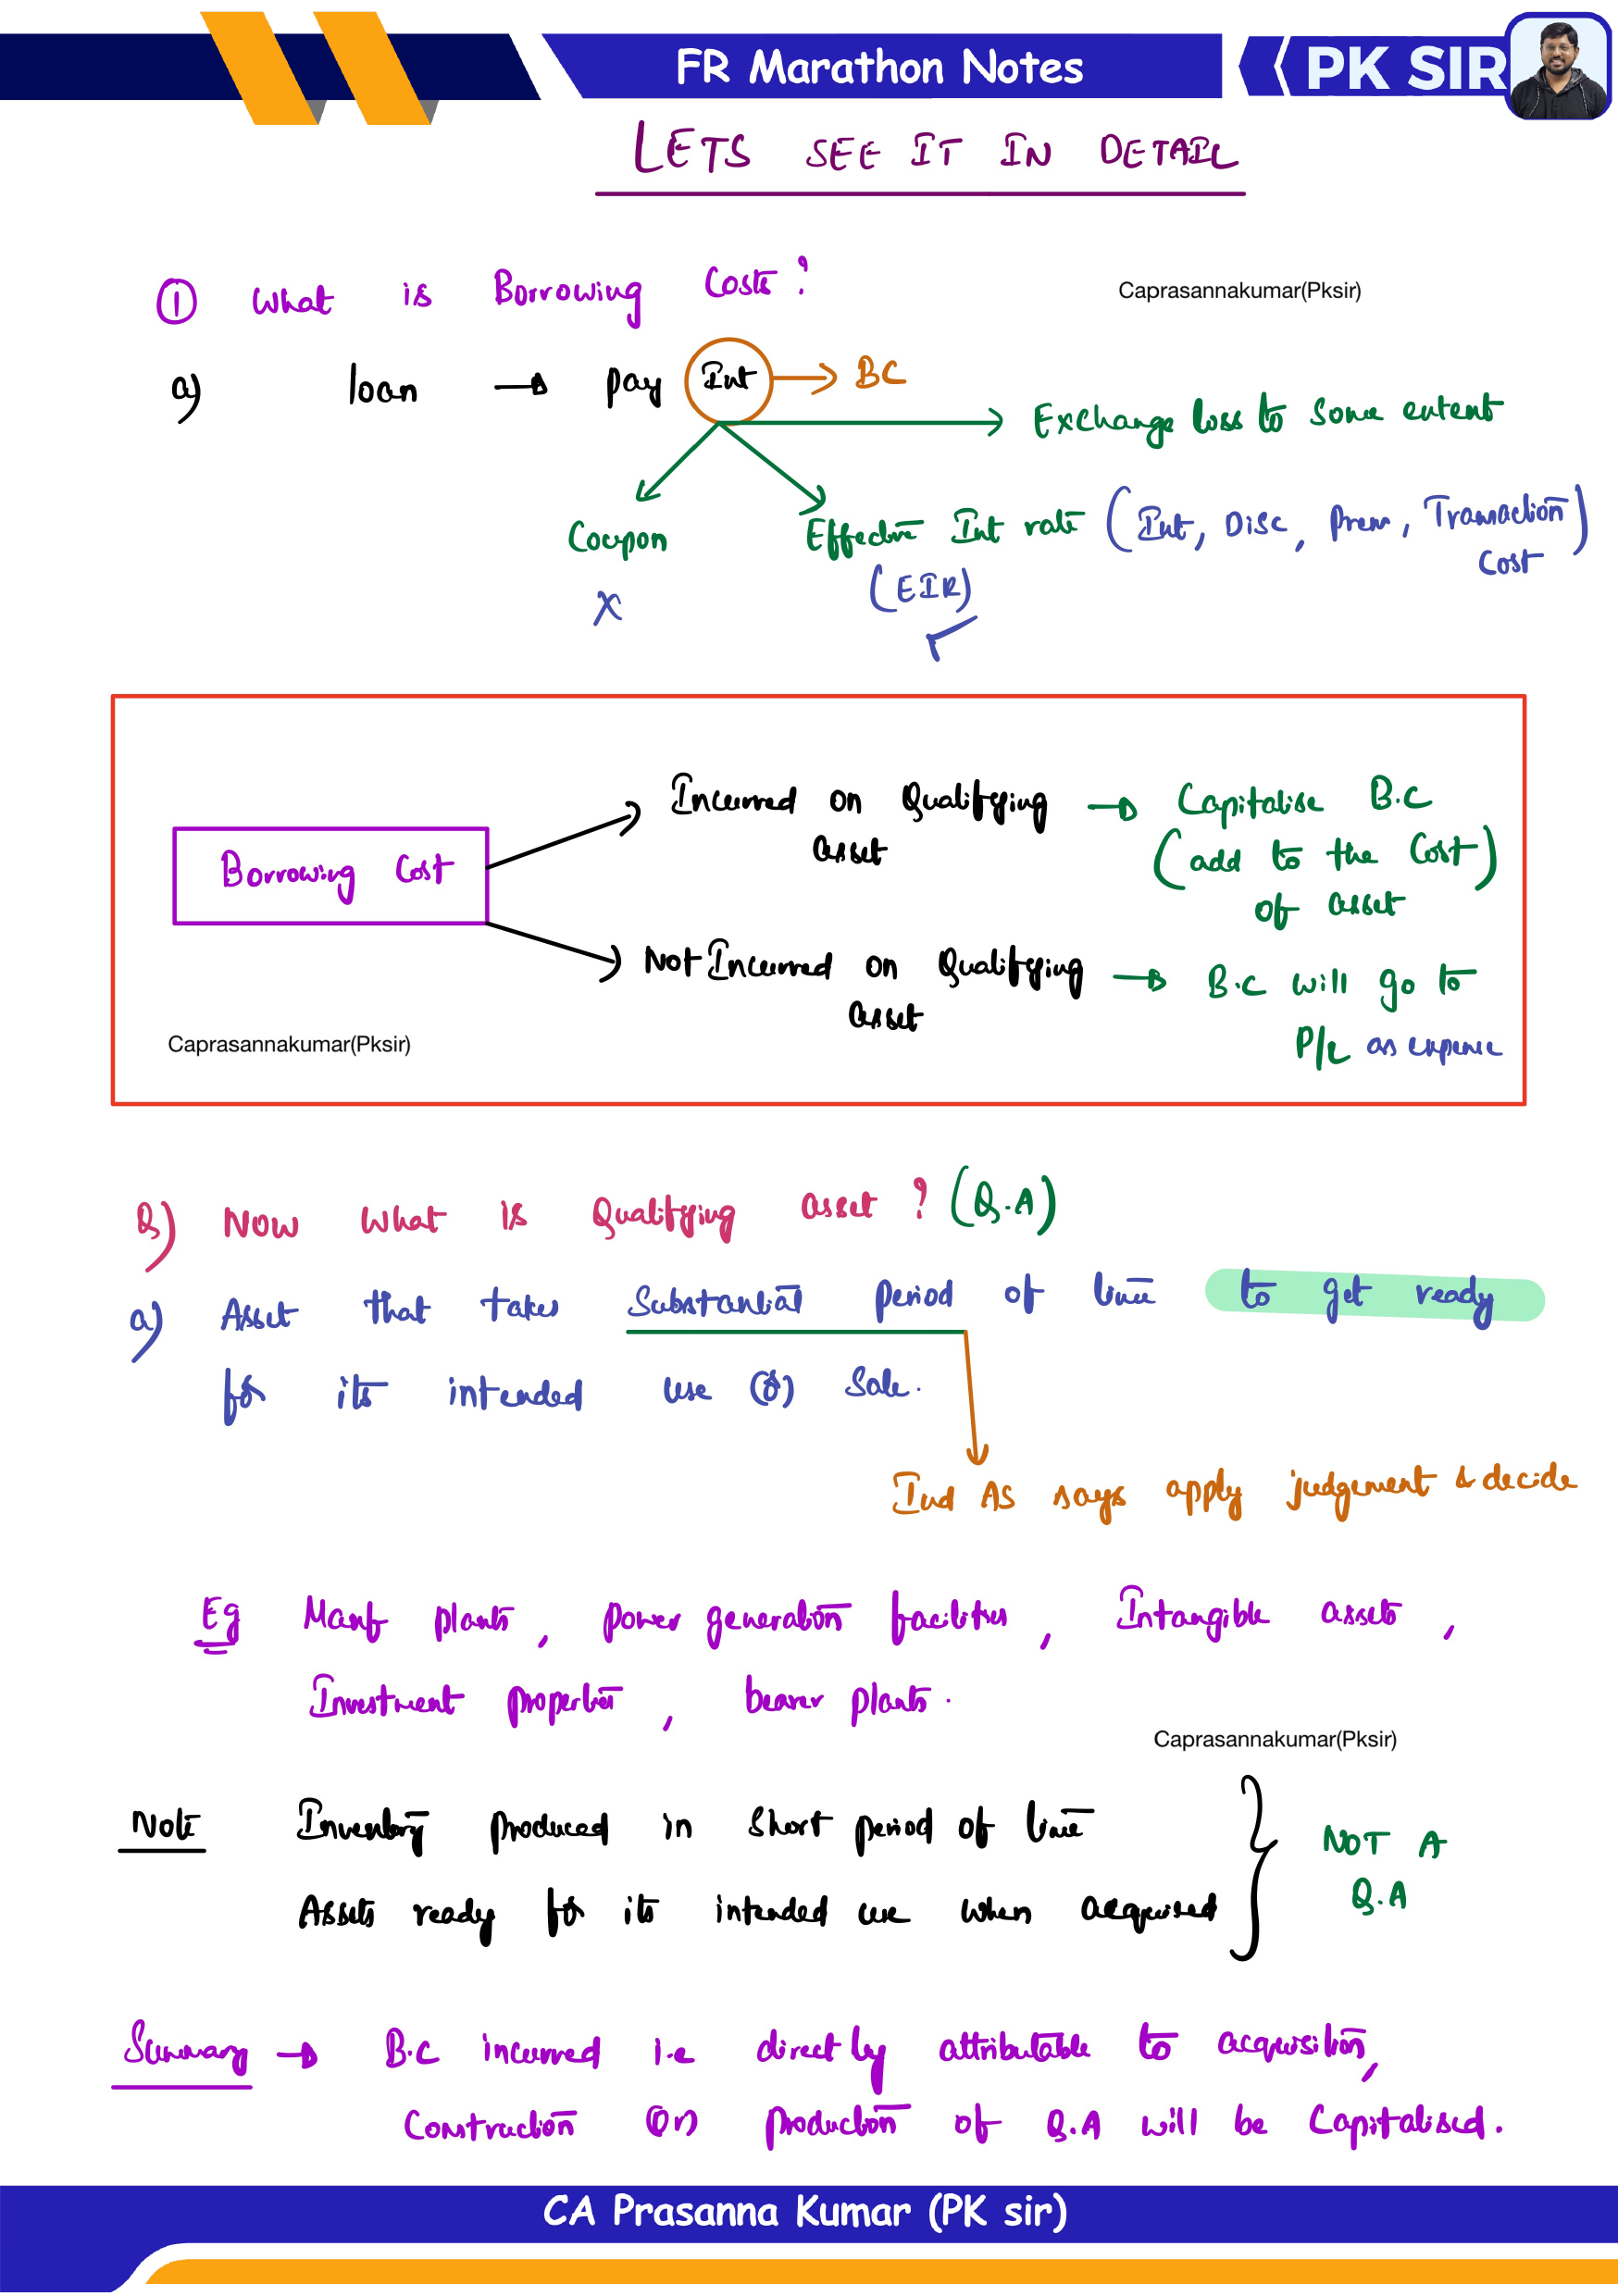 FR Marathon Notes
PK SIR
LETS SEE IT IN DETAIL
① What is Borrowing Costs?
Caprasannakumar(Pksir)
a) loan → pay Int → BC
Exchange loss to some extent
Coupon
Effective Int rate (Int, Disc, Prem, Transaction
Cost)
X
(EIR)
✓
Incurred on Qualifying → Capitalise B.C
asset
(add to the Cost)
Borrowing Cost
of asset
Not Incurred on Qualifying → B.C will go to
asset
P/L as expense
Caprasannakumar(Pksir)
Q) Now What is Qualifying asset? (Q.A)
a) Asset that takes Substantial period of time to get ready
for its intended use (or) Sale.
Ind AS says apply judgement & decide
Eg Manf plants, power generation facilities, Intangible assets,
Investment properties, bearer plants.
Caprasannakumar(Pksir)
Note Inventory produced in Short period of time
Assets ready for its intended use when acquired
NOT A
Q.A
Summary → B.C incurred i.e directly attributable to acquisition,
Construction (or) production of Q.A will be Capitalised.
CA Prasanna Kumar (PK sir)